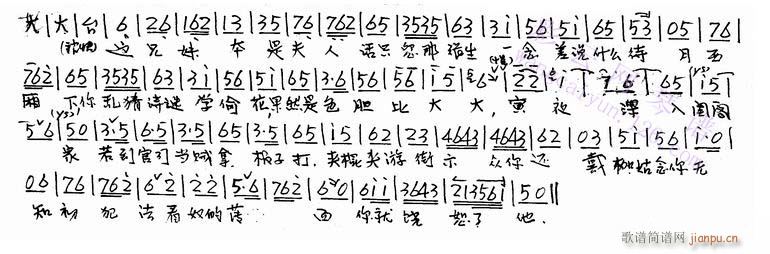 大 | 大 | 台 | 6 | 26 | 162 | 13 | 35 | 76 | 762 | 65 | 3535 | 63 | 3i | 56 | 5i | 65 | 53 | 05 | 76 |
这 兄 妹 本 是 夫 人 话只 忽那 一念 差说什么待 月西
762 | 65 | 3535 | 63 | 3i | 56 | 5i | 65 | 3·6 | 56 | 56 | i5 | 6 | 22 | i | 76 | 65 | i5 |
厢 下你乱猜诗谜 学偷 花果然是色 胆 比 天 大, 寅夜 深 入闺阁
56 | 50 | 3·5 | 6·5 | 3·5 | 65 | 3·5 | 65 | i5 | 62 | 23 | 4643 | 4643 | 62 | 03 | 5i | 56 | i·0 |
家 若到官司当贼拿 板子打, 夹棍夹游街示 众你还 戴枷姑念你无
06 | 76 | 762 | 62 | 22 | 5·6 | 762 | 60 | 6ii | 3643 | 213561 | 50 ‖
知初 犯 看奴的薄 面 你就饶 恕了 他.
歌谱简谱网 jianpu.cn